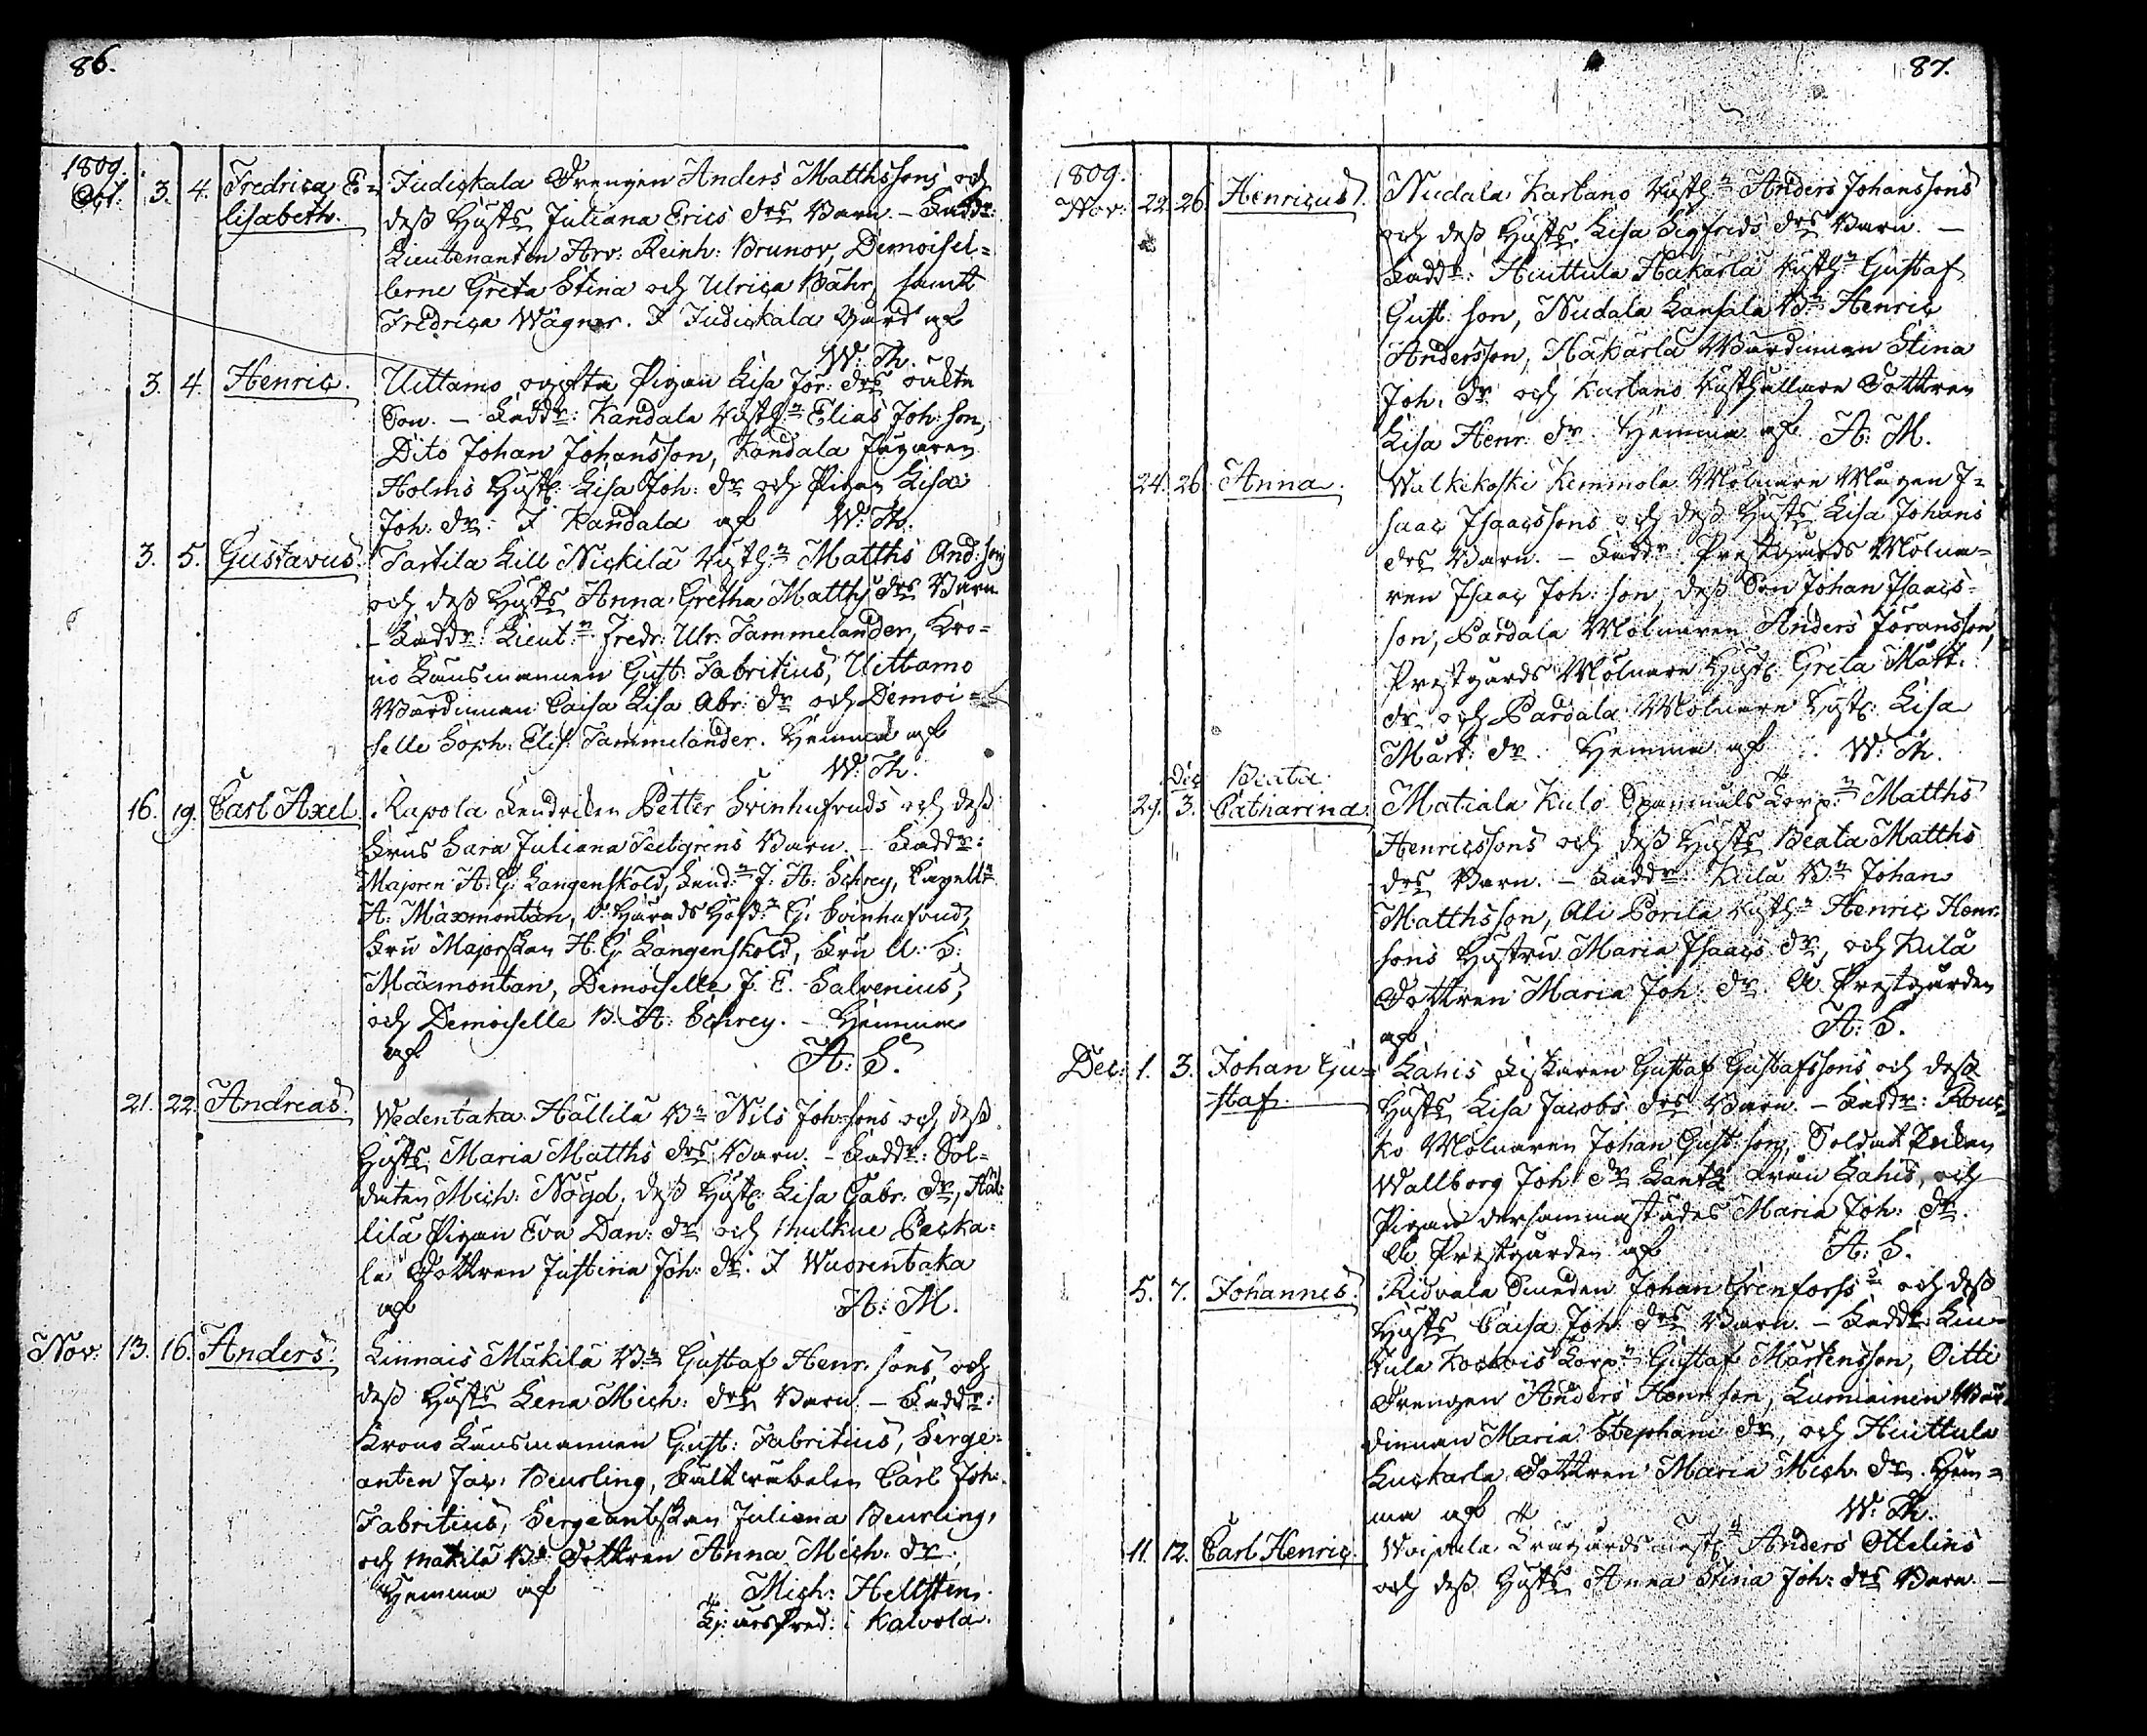 86.
1809.
Oct: 3. 4. Fredrica E= Judickala Drengen Anders Matthssons och
lisabeth. dess Hustrs Juliana Erics drs Barn. – Faddr:
Lieutenanten Arv: Reinh: Brunov, Demoisel=
lerne Greta Stina och Ulrica Bähr, samt
Fredrica Wagner. I Judickala Gård af
W: Th.
3. 4. Henric. Uittamo ogifta Pigan Lisa Jör: drs oäkta
Son. – Faddr: Kandala Rusth:n Elias Joh: son,
Dito Johan Johansson, Kandala Jägaren
Holms Hustr: Lisa Joh: dr och Pigan Lisa
Joh: dr: I Kandala af W: Th.
3. 5. Gustavus. Tartila Lill Nickilä Rusth:n Matths And: sons
och dess Hustrs Anna Gretha Matths drs Barn
– Faddr: Lieut:n Fredr: Ulr: Tammelander, Kro=
no Länsmannen Gust: Fabritius, Uittamo
Wärdinnan Caisa Lisa Abr: dr och Demoi=
selle Soph: Elis: Tammelander. Hemma af
W: Th.
16. 19. Carl Axel. Rapola Fendriken Petter Svinhufvuds och dess
Frus Sara Juliana Barn. – Faddr:
Majoren A: G: Langenskold, Fend:n J: A: Schrey, Capell:n
A: Maxmontan, V: Härads Höfd: G: Svinhufvud,
Fru Majorskan H: G: Langenskold, Fru U: S:
Maxmontan, Demoiselle J. E. Salvenius,
och Demoiselle B: A: Schrey. – Hemma
af A: S.
21. 22. Andreas. Wedentaka Hallila B:n Nils Joh: sons och dess
Hustrs Maria Matths drs Barn. – Faddr: Sol=
daten Mich: Nögd, dess Hustr: Lisa Gabr: dr, Häl=
lilä Pigan Eva Dan: dr och Mulkue Pecka=
la Dottren Justina Joh: dr. I Wuorentaka
af A: M.
Nov: 13. 16. Anders. Linnais Mäkilä B:n Gustaf Henr: sons och
dess Hustrs Lena Mich: drs Barn. – Faddr:
Krono Länsmannen Gust: Fabritius, Serge=
anten Jac: Beurling, Fält Carl Joh:
Fabritius, Sergeantskan Juliana Beurling,
och Makilä B: Dottren Anna Mich: dr
Hemma af Mich: Hellsten.
pred: i Kalvola.
87.
1809.
Nov: 22. 26. Henricus. Nudala Kartano Rusth:n Anders Johanssons
och dess Hustrs Lisa Sigfrids drs Barn. –
Faddr: Huittula Hakarla Rusth:n Gustaf
Gust: son, Nudala Lansala B:n Henric
Andersson, Häkärlä Wärdinnan Stina
Joh: dr och Kartano Rusthållare Dottren
Lisa Henr: dr. Hemma af A: M.
24. 26. Anna. Walkikoski Kemmola Mölnare Mågen I=
saac Isaacssons och dess Hustrs Lisa Johans
drs Barn. – Faddr: Prestgårds Mölna=
ren Isaac Joh: son, dess Son Johan Isaacs=
son, Pardala Mölnaren Anders Jöransson,
Prestgårds Mölnare Hustr: Greta Matt:
dr och Pardala Mölnare Hustr: Lisa
Mårt: dr. Hemma af W: Th.
Dec Beata
29. 3. Catharina. Matiala Kulo Spanmåls Corp:n Matths
Henricssons och dess Hustrs Beata Matths
drs Barn. – Faddr: Kulà B:n Johan
Matthsson, Ali Porila Rusth:n Henric Henr:
sons Hustru Maria Isaacs dr, och Kulà
Dottren Maria Joh: dr. A Prestgården
af A: S.
Dec: 1. 3. Johan Gu= Lahis Fiskaren Gustaf Gustafssons och dess
staf. Hustrs Lisa Jacobs drs Barn. – Faddr: Rouc=
ko Mölnaren Johan Gust: son, Soldat Enkan
Wallborg Joh: dr Lantz från Lahis, och
Pigan dersammastädes Maria Joh: dr.
A Prestgården af A: S.
5. 7. Johannes. Ridvala Smeden Johan Grenforss och dess
Hustrs Caisa Joh: drs Barn. – Faddr: Lin=
tula Corp:n Gustaf Mårtensson, Oitti
Drengen Anders Henr: son, Lumainen Wär=
dinnan Maria Stephani dr, och Huittula
Luckarla Dottren Maria Mich: dr. Hem=
ma af W: Th.
11. 12. Carl Henric. Woipala Trägårdsmäst: Anders Ottelins
och dess Hustrs Anna Stina Joh: drs Barn. –